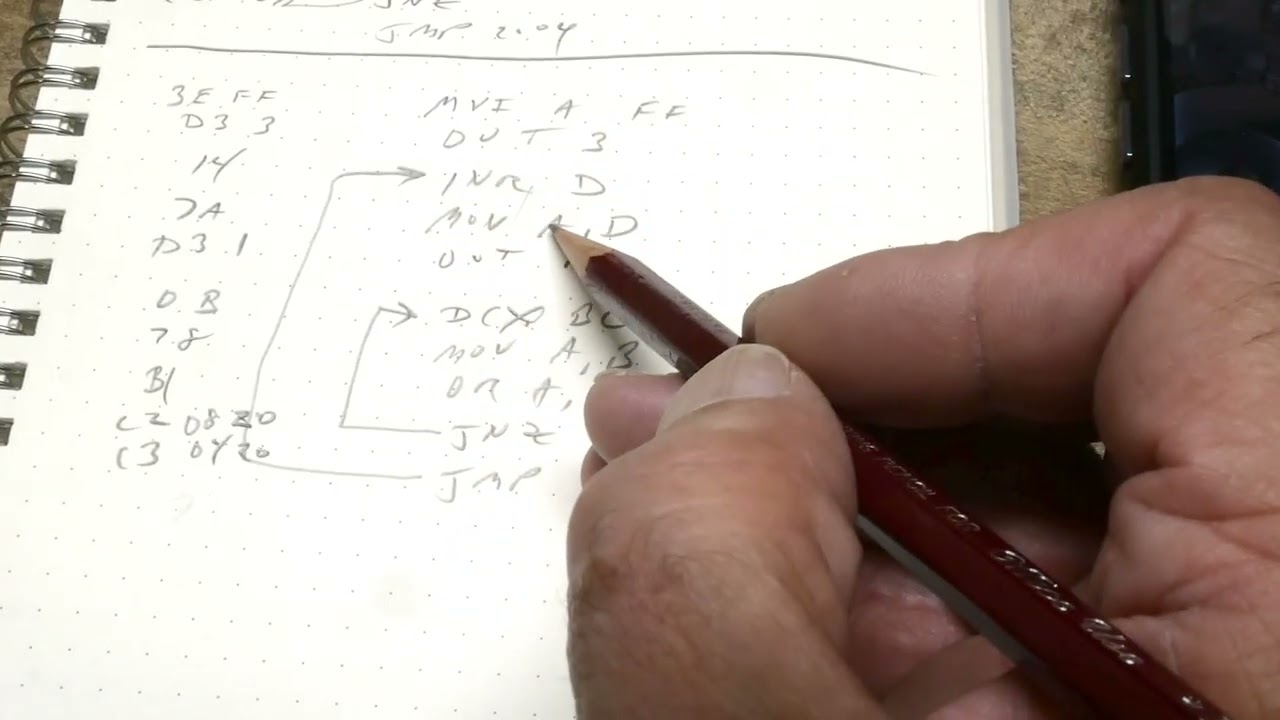 JNZ
JMP 2.04
3E FF MVI A FF
D3 3 OUT 3
14 INR D
7A MOV A, D
D3 1 OUT
0B DCX BC
78 MOV A, B
B1 OR A,
C2 08 20 JNZ
C3 04 20 JMP